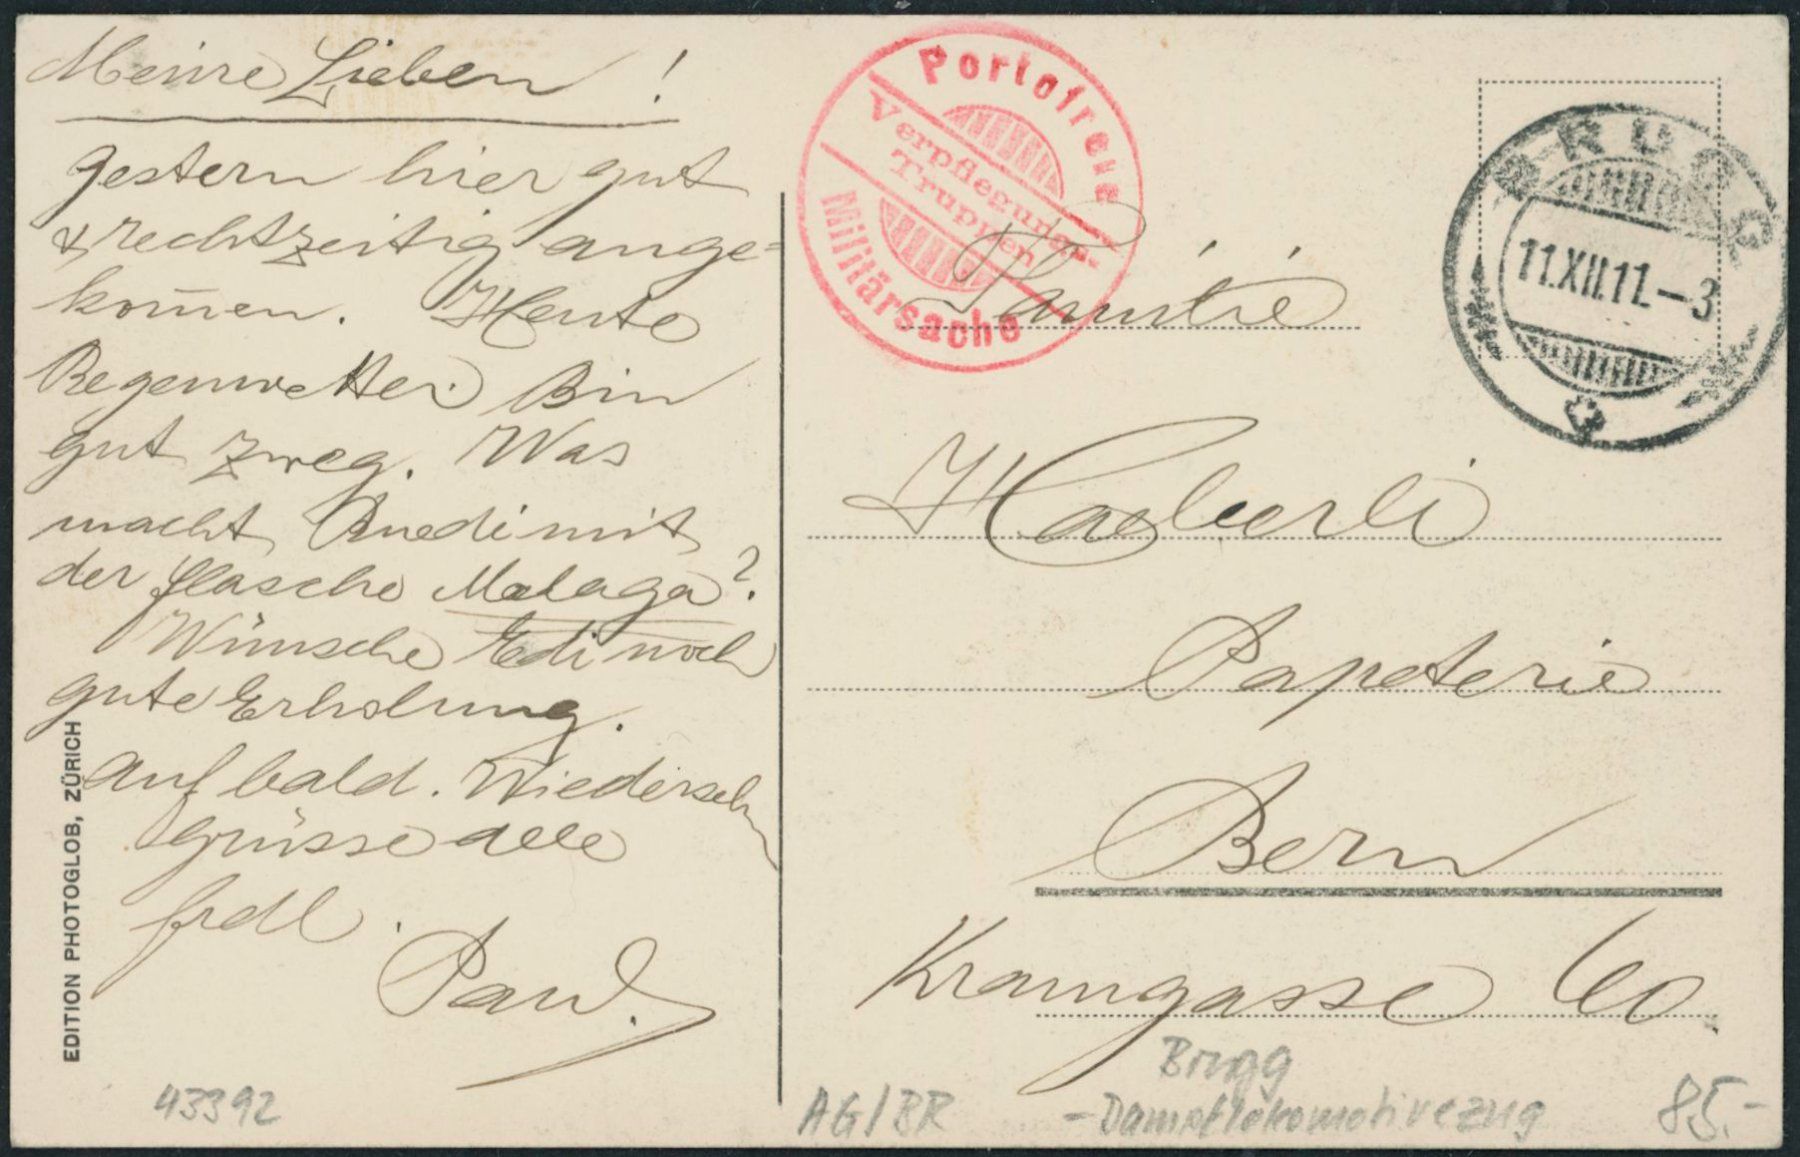 Meine Lieben !
gestern hier gut
& rechtzeitig ange-
kom̄en. Heute
Regenwetter. Bin
gut zweg. Was
macht Ruedi mit
der Flasche Malaga?
Wünsche Edi noch
gute Erholung.
Auf bald. Wiedersehn
Grüsse alle
frdl.
Paul.
EDITION PHOTOGLOB, ZÜRICH
43392
Portofreie
Verpflegungs-
Truppen
Militärsache
BRUGG
11.XII.11.–3
Familie
Haeberli
Papeterie
Bern
Kramgasse 60.
Brugg
AG/BR – Dampflokomotivezug 85.-